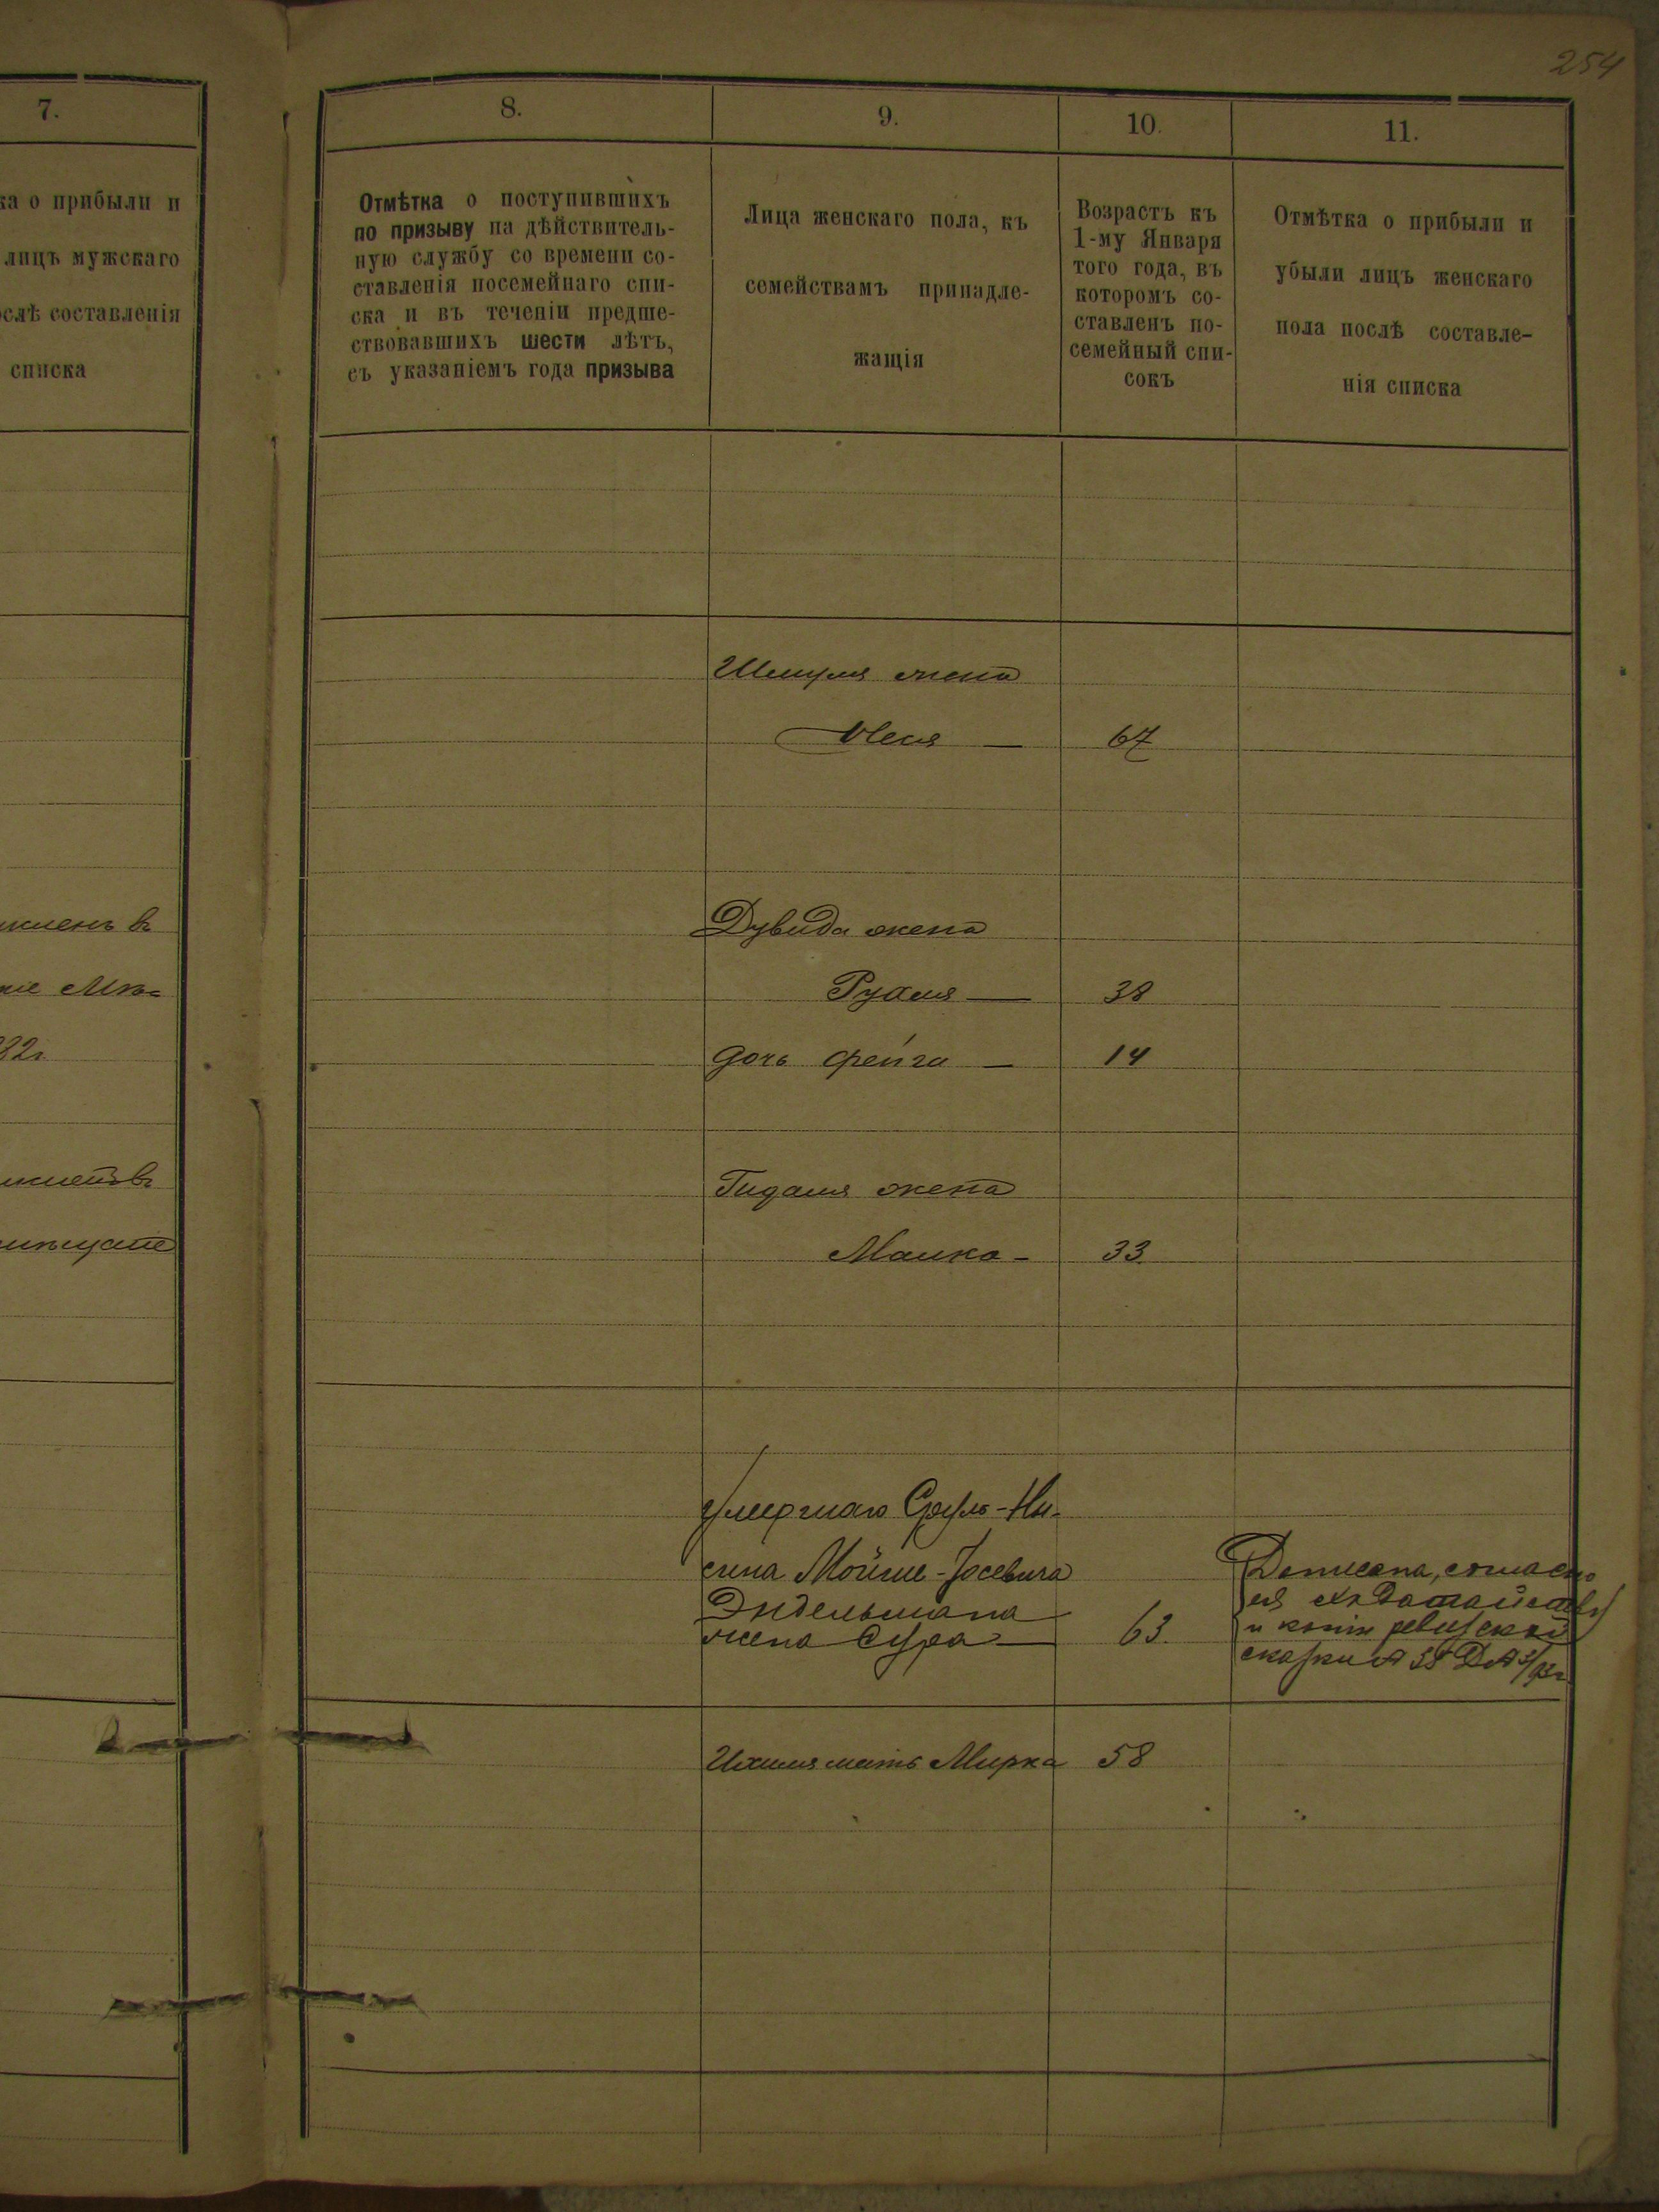 254
7.
8.
9.
10.
11.
ка о прибыли и
лицъ мужскаго
ослѣ составленія
списка
Отмѣтка о поступившихъ
по призыву на дѣйствитель-
ную службу со времени со-
ставленія посемейнаго спи-
ска и въ теченіи предше-
ствовавшихъ шести лѣтъ,
съ указаніемъ года призыва
Лица женскаго пола, къ
семействамъ принадле-
жащія
Возрастъ къ
1-му Января
того года, въ
которомъ со-
ставленъ по-
семейный спи-
сокъ
Отмѣтка о прибыли и
убыли лицъ женскаго
пола послѣ составле-
нія списка
Шмуля жена
67
Дувида жена
Рухля — 38
дочь Фейга — 14
Гидаля жена
Малка - 33
Умершаго Сруль-Ни-
сина Мойше-Іосевича
Эндельмана
жена Сура — 63.
Дописана, согласно
ея ходатайству
и копіи ревизской
сказки
Ихиля мать Мирка 58